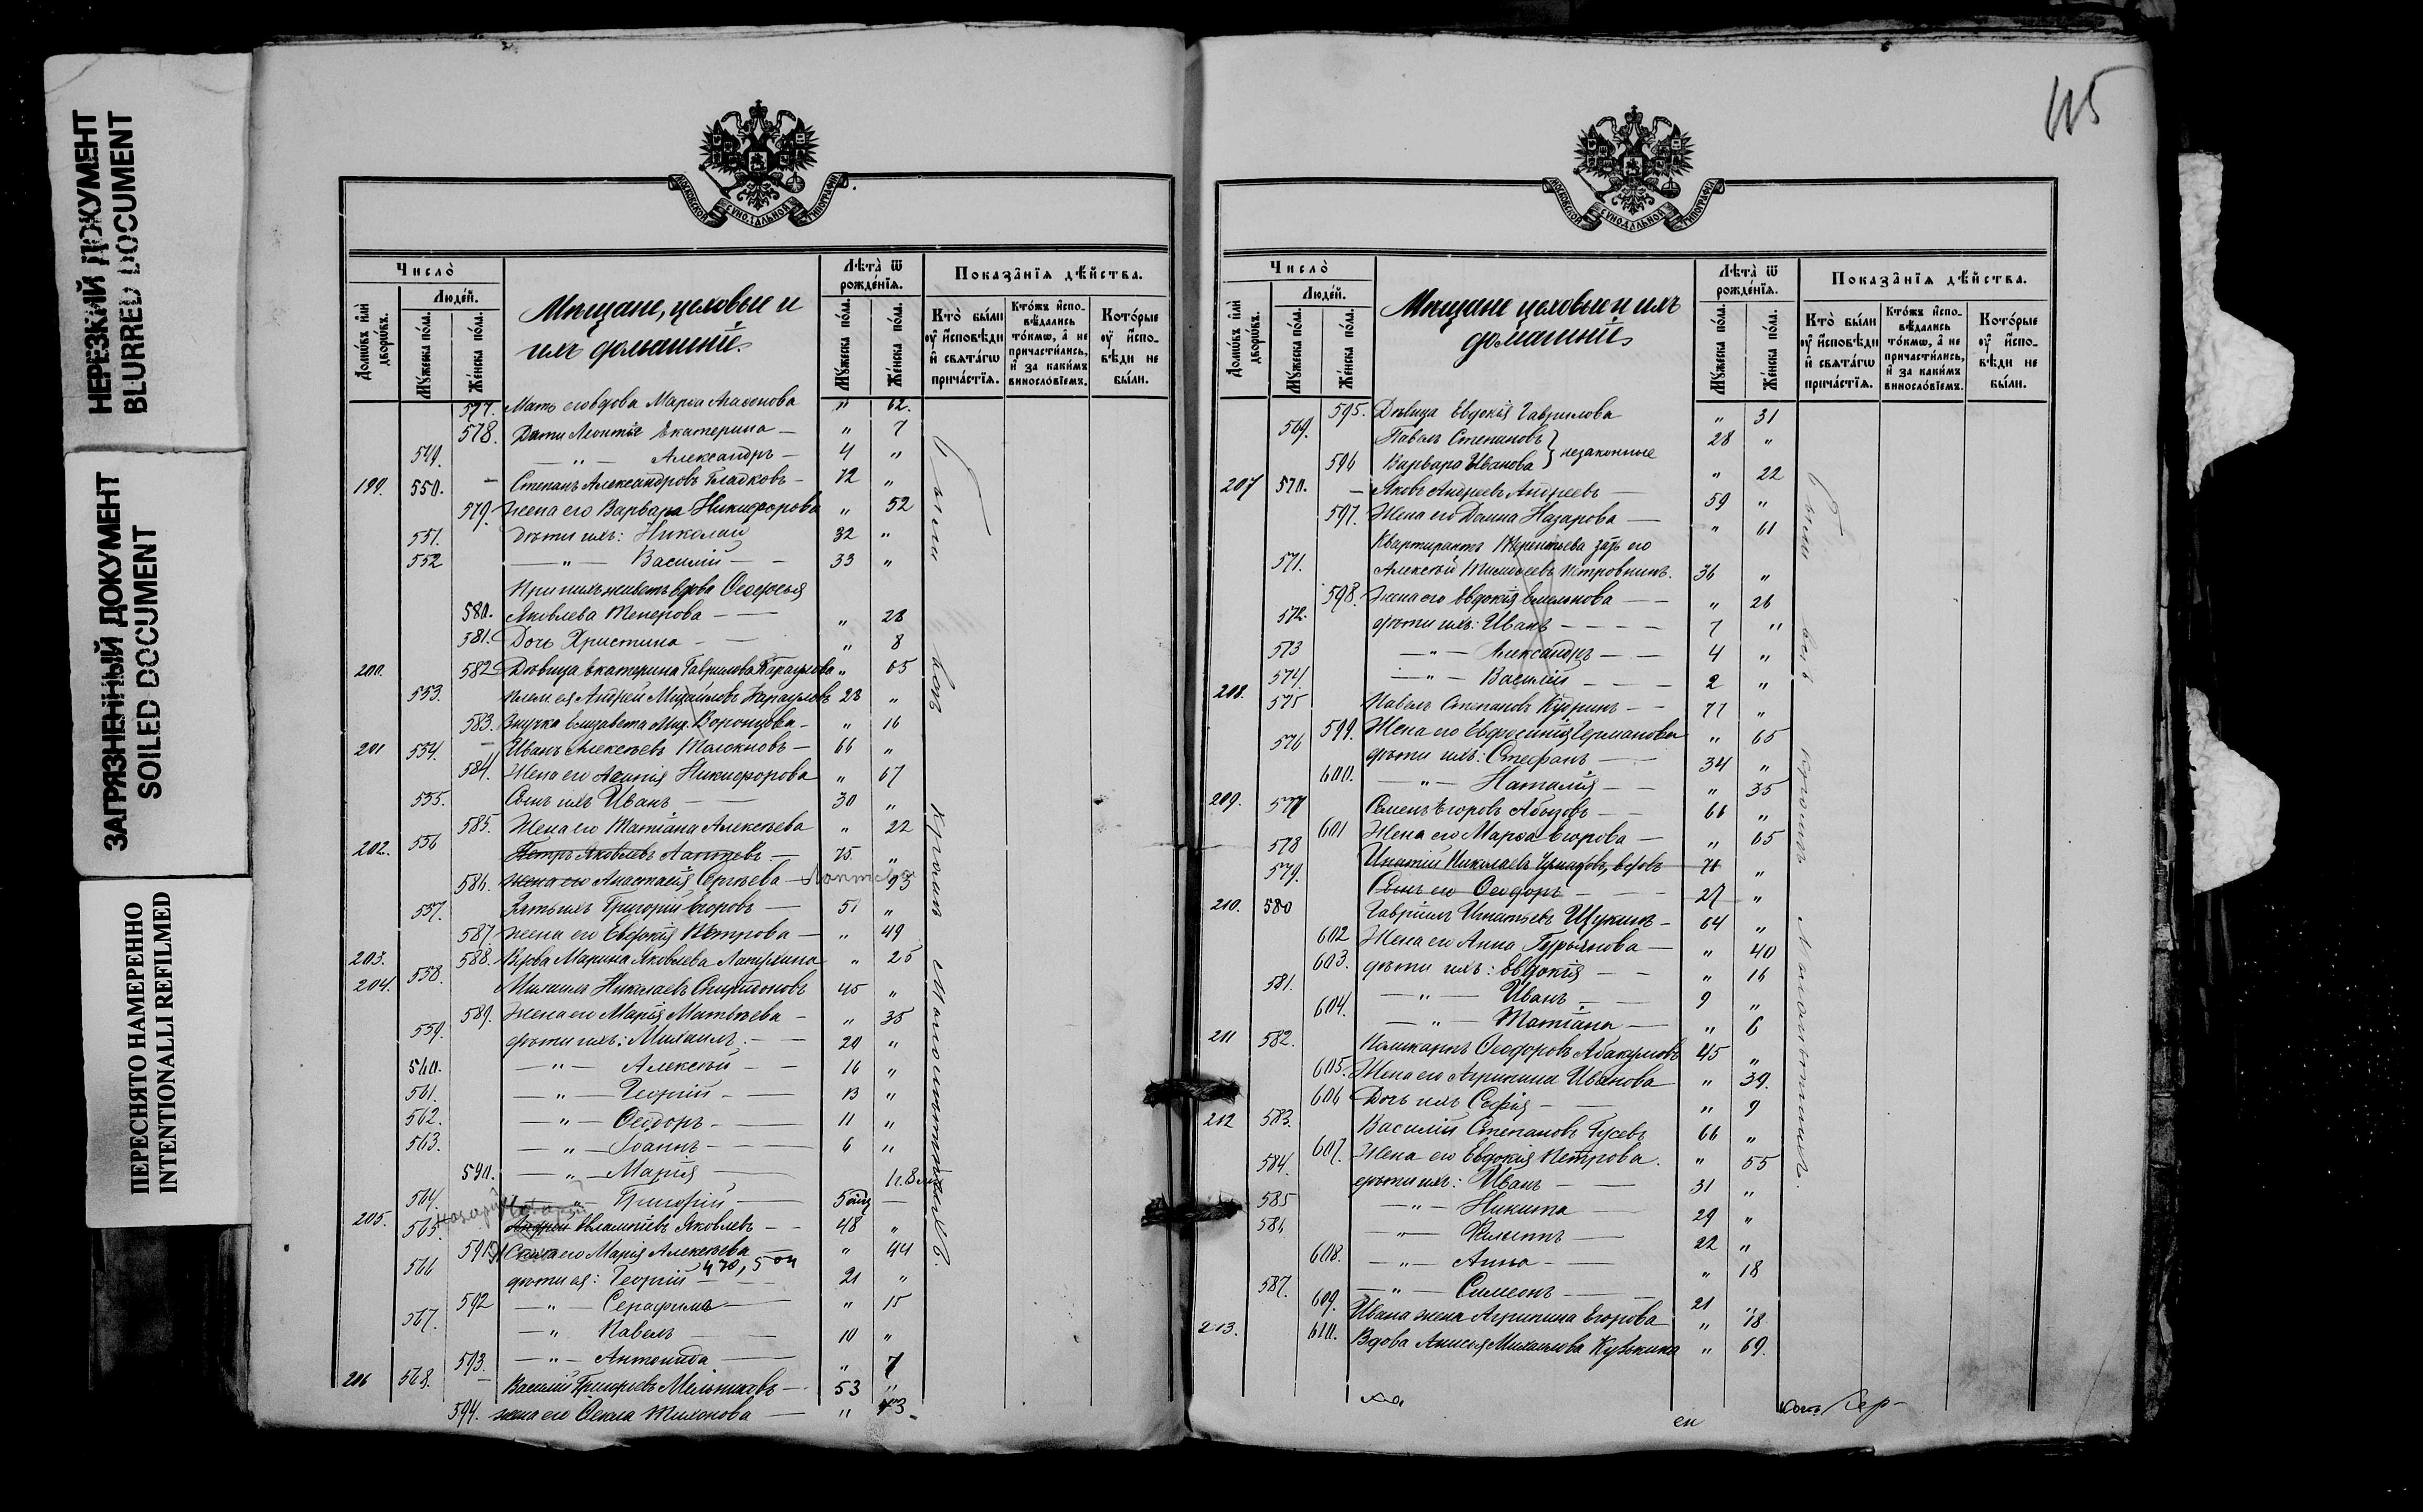 НЕРЕЗКИЙ ДОКУМЕНТ
BLURRED DOCUMENT
ЗАГРЯЗНЕННЫЙ ДОКУМЕНТ
SOILED DOCUMENT
ПЕРЕСНЯТО НАМЕРЕННО
INTENTIONALLI REFILMED
МОСКОВСКОЙ СѴНОДАЛЬНОЙ ТИПОГРАФІИ
Число̀
Домѡ́въ и҆лѝ дворѡ́въ.
Люде́й.
Мꙋ́жеска по́ла.
Же́нска по́ла.
Мѣщане, цеховые и
ихъ домашніе.
Лѣта̀ ѿ рожде́нїѧ.
Мꙋ́жеска по́ла.
Же́нска по́ла.
Показа̂нїѧ дѣ́йства.
Кто̀ бы́ли ᲂу҆ и҆сповѣди и҆ свѧта́гѡ прича́стїѧ.
Кто́жъ и҆сповѣ́дались то́кмѡ, а҆ не причасти́лись, и҆ за каки́мъ виносло́вїемъ.
Кото́рые ᲂу҆ и҆сповѣди не бы́ли.
577. Мать его вдова Марѳа Агаѳонова " 62.
578. Дѣти Леонтія Екатерина — " 7
549. — " — Александръ — 4 "
199. 550. — Степанъ Александровъ Гладковъ — 72 "
579. Жена его Варвара Никифорова " 52
551. Дѣти ихъ: Николай 32 "
552 — " — Василій — — 33 "
При нихъ живетъ вдова Ѳеодосія
580. Яковлева Темерова — — " 28
581. Дочь Христина — — " 8
200. 582 Дѣвица Екатерина Гаврилова Караулова " 65
553. Плем. ея Андрей Михайловъ Карауловъ 28 "
583. Внучка Елизавета Мих. Воронцова — " 16
201 554. — Иванъ Алексѣевъ Молокновъ — 66 "
584. Жена его Агапія Никифорова " 67
555. Сынъ ихъ Иванъ — — 30 "
585. Жена его Татіана Алексѣева " 22
202. 556 Петръ Яковлевъ Лаптевъ — 75 "
586. жена его Анастасія Сергѣева — Лаптева 93
557. Зять ихъ Григорій Егоровъ — 51 "
587. жена его Евдокія Петрова — " 49
203. 588. Вдова Марина Яковлева Лапухина " 25
204. 558. Михаилъ Николаевъ Спиридоновъ 45 "
589. Жена его Марія Матвѣева — " 35
559. дѣти ихъ: Михаилъ — — 20 "
560. — " — Алексѣй — — 16 "
561. — " — Георгій — — 13 "
562. — " — Ѳеодоръ — — 11 "
563. — " — Іоаннъ — — 6 "
590. — " — Марія —
564. — " — Григорій —
205. 565. Андрей Евлампіевъ Яковлевъ — — 48 "
591 его Марія Алексѣева — " 44
566 дѣти ея: Георгій — 21 "
592 — " — Серафима — " 15
567. — " Павелъ — — 10 "
593. — " — Антонида — " 7
206 568. — Василій Григорьевъ Мельниковъ — 53 "
594. жена его Ѳекла Тихонова — " 43
Были всѣ кромѣ малолѣтнихъ.
115
МОСКОВСКОЙ СѴНОДАЛЬНОЙ ТИПОГРАФІИ
Число̀
Домѡ́въ и҆лѝ дворѡ́въ.
Люде́й.
Мꙋ́жеска по́ла.
Же́нска по́ла.
Мѣщане цеховые и ихъ
домашніе
Лѣта̀ ѿ рожде́нїѧ.
Мꙋ́жеска по́ла.
Же́нска по́ла.
Показа̂нїѧ дѣ́йства.
Кто̀ бы́ли ᲂу҆ и҆сповѣди и҆ свѧта́гѡ прича́стїѧ.
Кто́жъ и҆сповѣ́дались то́кмѡ, а҆ не причасти́лись, и҆ за каки́мъ виносло́вїемъ.
Кото́рые ᲂу҆ и҆сповѣди не бы́ли.
595. Дѣвица Евдокія Гаврилова " 31
569. Павелъ Степановъ } незаконные 28 "
596 Варвара Иванова " 22
207 570. — Яковъ Андреевъ Андреевъ — 59 "
597. Жена его Домна Назарова — " 61
Квартирантъ зять его
571. Алексѣй Тимоѳеевъ Петровнинъ. 36 "
598. Жена его Евдокія Емельянова — — " 26
572. дѣти ихъ: Иванъ — — — — 7 "
573 — " — Александръ — — 4 "
574. — " — Василій — — — 2 "
208. 575 Павелъ Степановъ Кудринъ — — 71 "
599. Жена его Евфросинія Германова " 65
576 дѣти ихъ: Стефанъ — — 34 "
600. — " — Наталія — — " 35
209. 577 Семенъ Егоровъ Абызовъ — — 66 "
601 Жена его Марѳа Егорова — " 65
578 Игнатій Николаевъ вдовъ 71 "
579. Сынъ его Ѳеодоръ — — — 27 "
210. 580 Гавріилъ Игнатьевъ Щукинъ — 64 "
602 Жена его Анна Гурьянова — " 40
603. дѣти ихъ: Евдокія — — " 16
581. — " — Иванъ — — 9 "
604. — " — Татіана — " 6
211 582. Поликарпъ Ѳеодоровъ Абакумовъ 45 "
605. Жена его Агрипина Иванова " 39.
606 Дочь ихъ Софія — — " 9
212 583. Василій Степановъ Гусевъ 66 "
607. Жена его Евдокія Петрова. " 55
584. дѣти ихъ: Иванъ — — 31 "
585 — " — Никита — 29 "
586 — " — Филиппъ — 22 "
608. — " — Анна — — " 18
587. — " — Симеонъ — — 21 "
609. Ивана жена Агрипина Егорова " 18
213. 610. Вдова Анисія Михайлова Кузькина " 69.
Были всѣ кромѣ малолѣтнихъ.